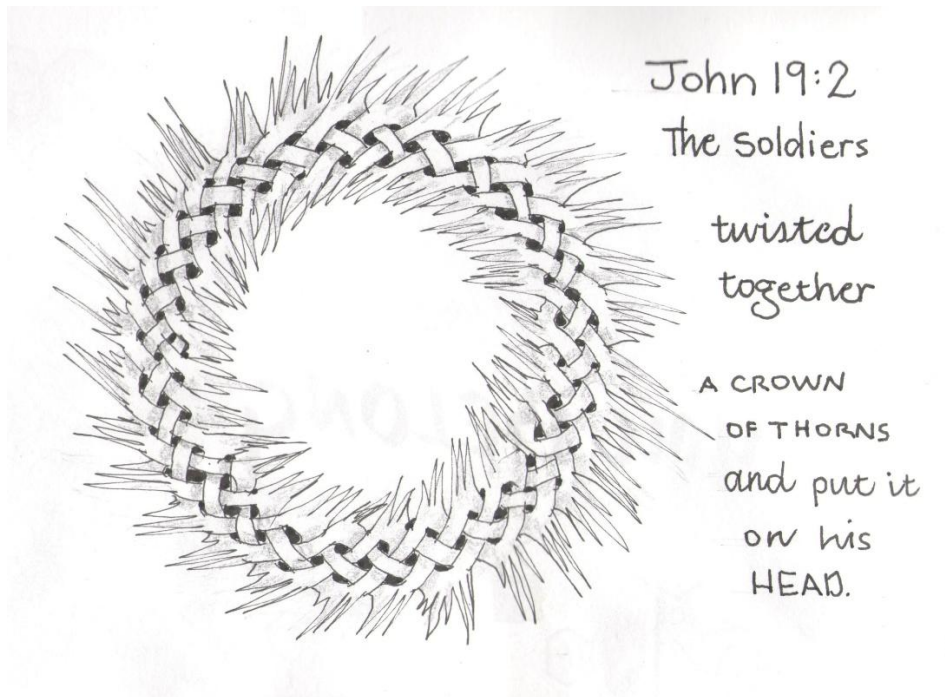 John 19:2
The Soldiers
twisted
together
A CROWN
OF THORNS
and put it
on his
HEAD.